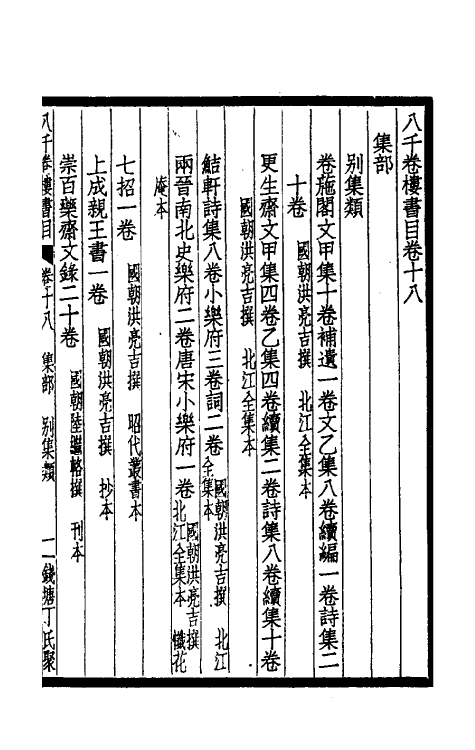 八千卷樓書目卷十八
集部
别集類
卷施閣文甲集十卷補遺一卷文乙集八卷續編一卷詩集二
十卷 國朝洪亮吉撰 北江全集本
更生齋文甲集四卷乙集四卷續集二卷詩集八卷續集十卷
國朝洪亮吉撰 北江全集本
鮚軒詩集八卷小樂府三卷詞二卷 國朝洪亮吉撰 北江
全集本
兩晉南北史樂府二卷唐宋小樂府一卷 國朝洪亮吉撰
北江全集本 懺花
庵本
七招一卷 國朝洪亮吉撰 昭代叢書本
上成親王書一卷 國朝洪亮吉撰 抄本
崇百藥齋文錄二十卷 國朝陸繼輅撰 刊本
八千卷樓書目 卷十八 集部 别集類 一 錢塘丁氏聚